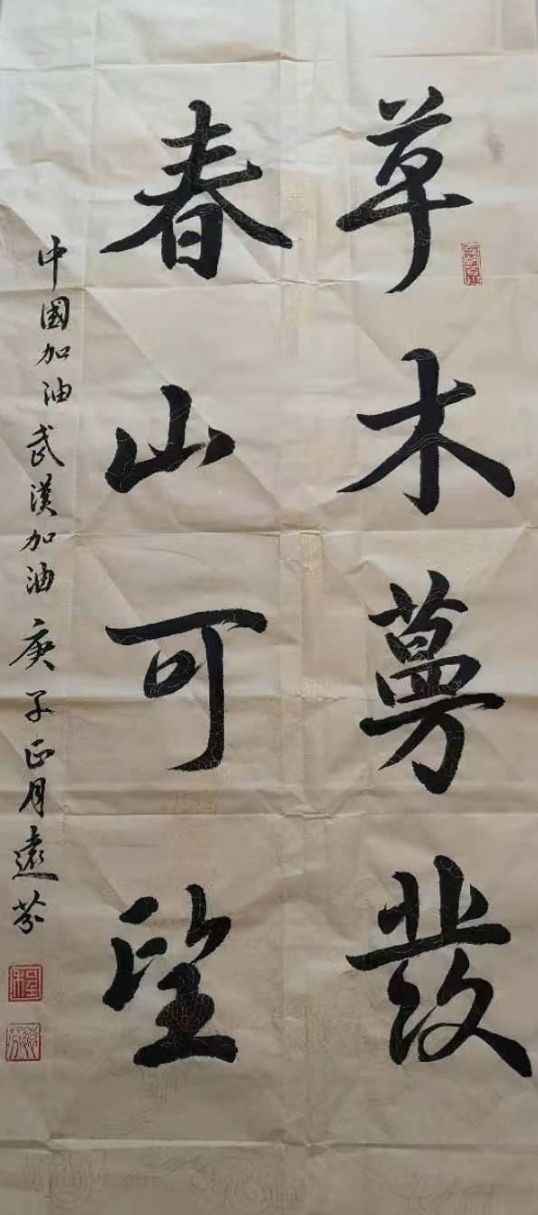 草木蔓發
春山可望
中國加油武漢加油 庚子正月遠芬